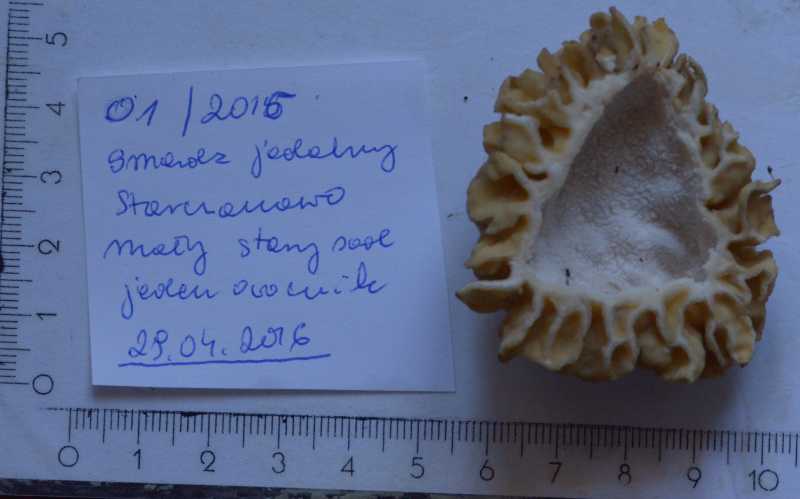 01/2016
smardz jadalny
Starczanowo
mały stary sad
jeden owocnik
29.04.2016
5
4
3
2
1
0
0 1 2 3 4 5 6 7 8 9 10